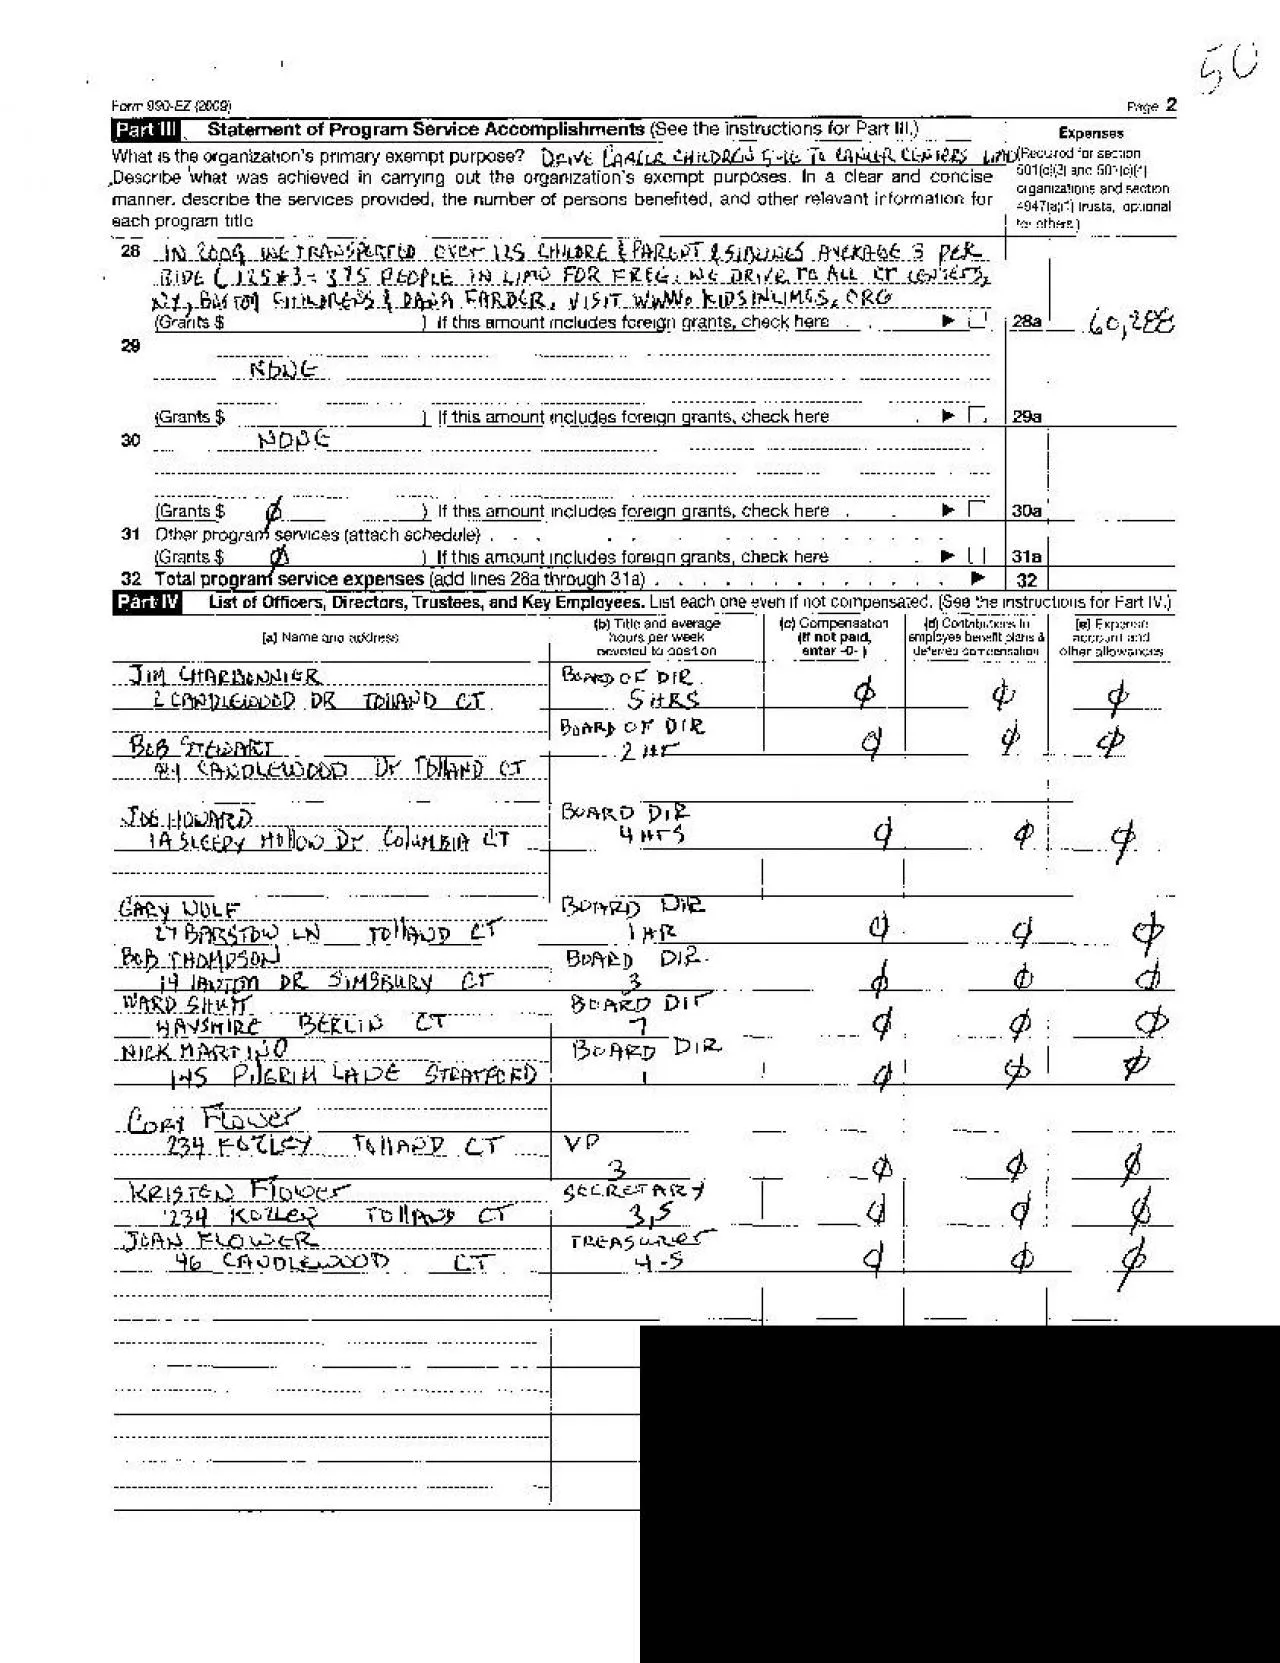 50
Form 990-EZ (2009) Page 2
Part III Statement of Program Service Accomplishments (See the instructions for Part III.) Expenses
What is the organization's primary exempt purpose? DRIVE CANCER CHILDREN TO CANCER CENTERS LIMO (Required for section
Describe what was achieved in carrying out the organization's exempt purposes. In a clear and concise 501(c)(3) and 501(c)(4)
manner, describe the services provided, the number of persons benefited, and other relevant information for organizations and section
each program title 4947(a)(1) trusts, optional
for others.)
28 IN 2009 WE TRANSPORTED OVER 125 CHILDRE & PARENT & SIBLINGS AVERAGE 3 PER
RIDE (125*3 = 375 PEOPLE IN LIMO FOR FREE. WE DRIVE TO ALL CT CENTERS,
NY, BOSTON CHILDRENS & DANA FARBER. VISIT WWW. KIDSINLIMOS.ORG
(Grants $ ) If this amount includes foreign grants, check here . . ▶ 28a 60,288
29
NONE
(Grants $ ) If this amount includes foreign grants, check here . ▶ 29a
30 NONE
(Grants $ ∅ ) If this amount includes foreign grants, check here . . ▶ 30a
31 Other program services (attach schedule) . . . . . . . . . . . .
(Grants $ ∅ ) If this amount includes foreign grants, check here . ▶ 31a
32 Total program service expenses (add lines 28a through 31a) . . . . . . . . . . . ▶ 32
Part IV List of Officers, Directors, Trustees, and Key Employees. List each one even if not compensated. (See the instructions for Part IV.)
(a) Name and address (b) Title and average hours per week devoted to position (c) Compensation (If not paid, enter -0-.) (d) Contributions to employee benefit plans & deferred compensation (e) Expense account and other allowances
JIM CHARBONNIER BOARD OF DIR.
2 CANDLEWOOD DR TOLLAND CT 5 HRS ∅ ∅ ∅
BOARD OF DIR
BOB STEWART 2 Hr ∅ ∅ ∅
CANDLEWOOD Dr TOLLAND CT
JOE HOWARD BOARD DIR
1A SLEEPY HOLLOW Dr COLUMBIA CT 4 Hrs ∅ ∅ ∅
GARY WOLF BOARD DIR
27 BARSTOW LN TOLLAND CT 1 HR ∅ ∅ ∅
BOB THOMPSON BOARD DIR.
DR SIMSBURY CT 3 ∅ ∅ ∅
WARD SHUTT BOARD DIr
HAYSHIRE BERLIN CT 7 ∅ ∅ ∅
NICK MARTINO BOARD DIR
145 PILGRIM LANE STRATFORD 1 ∅ ∅ ∅
CORY FLOWER
234 KOZLEY TOLLAND CT VP
3 ∅ ∅ ∅
KRISTEN FLOWER SECRETARY
234 KOZLEY TOLLAND CT 3,5 ∅ ∅ ∅
JOAN FLOWER TREASURER
46 CANDLEWOOD CT 4-5 ∅ ∅ ∅